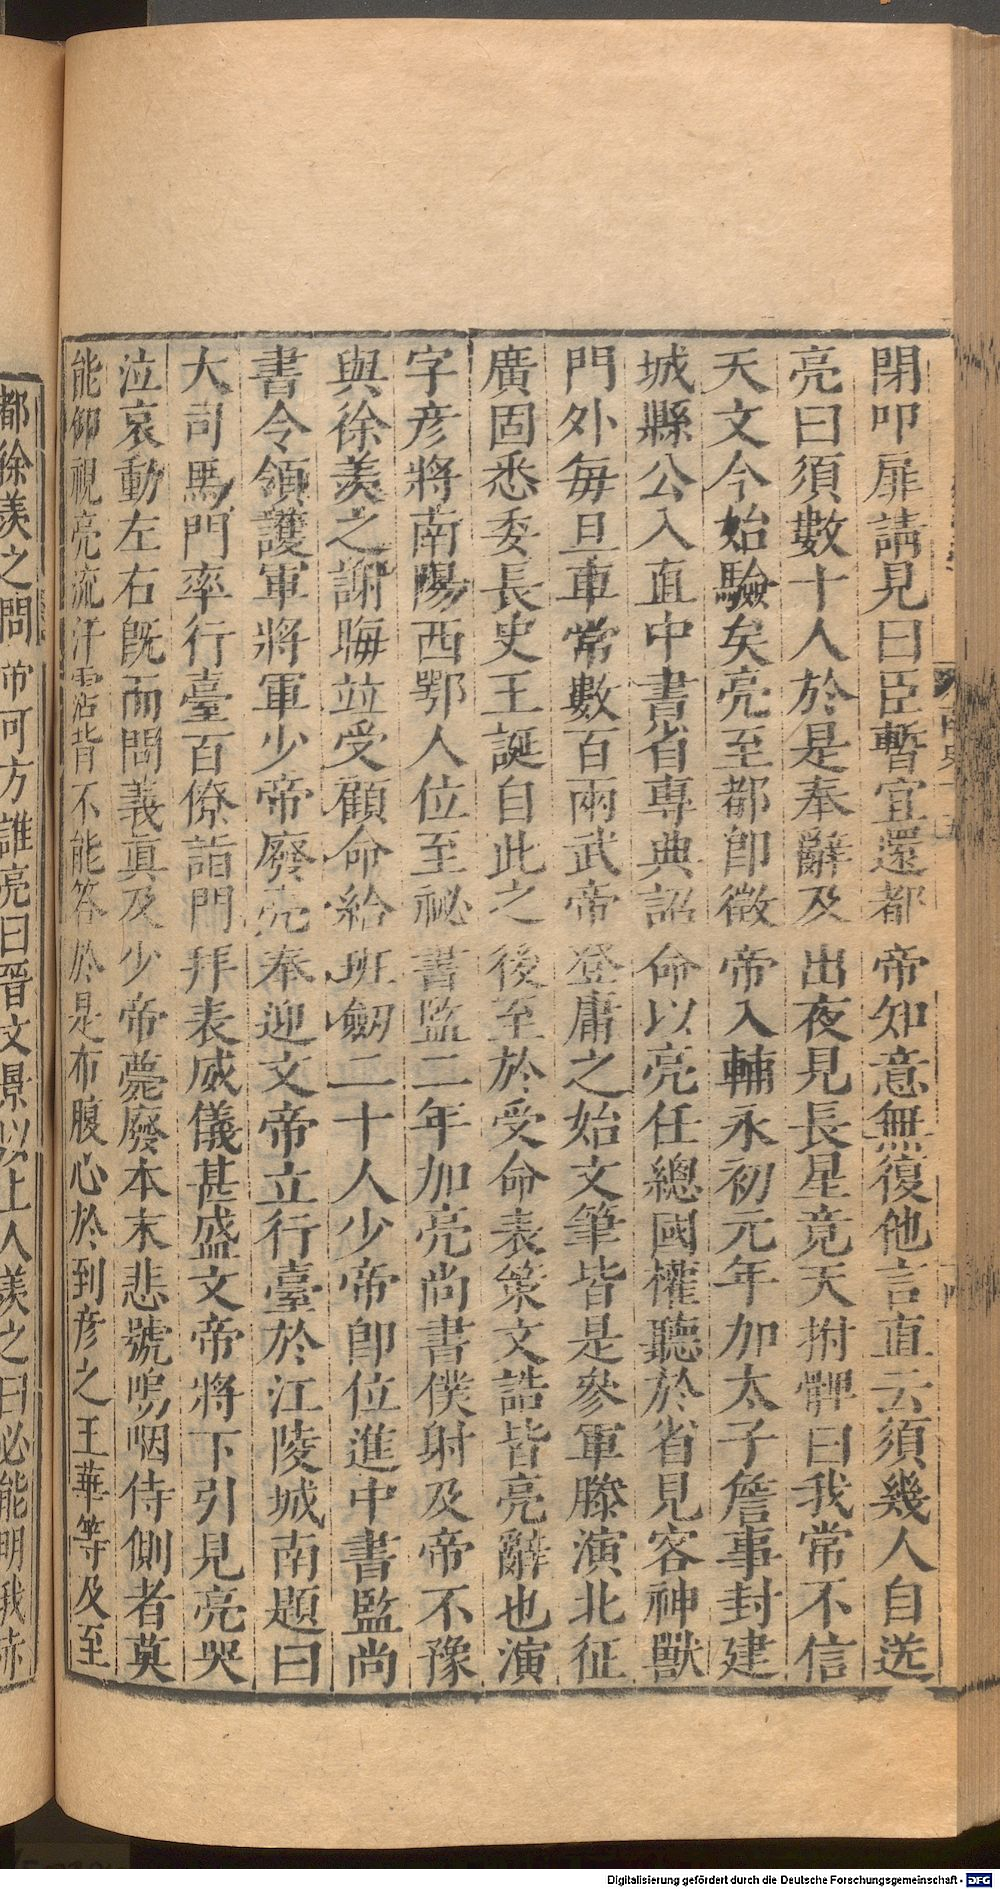 閉叩扉請見曰臣暫宜還都帝知意無復他言直云須幾人自送
亮曰須數十人於是奉辭及出夜見長星竟天拊髀曰我常不信
天文今始驗矣亮至都卽徵帝入輔永初元年加太子詹事封建
城縣公入直中書省專典詔命以亮任總國權聽於省見客神獸
門外每旦車常數百兩武帝登庸之始文筆皆是參軍滕演北征
廣固悉委長史王誕自此之後至於受命表策文誥皆亮辭也演
字彦將南陽西鄂人位至祕書監二年加亮尚書僕射及帝不豫
與徐羨之謝晦竝受顧命給班劒二十人少帝卽位進中書監尚
書令領護軍將軍少帝廢亮奉迎文帝立行臺於江陵城南題曰
大司馬門率行臺百僚詣門拜表威儀甚盛文帝將下引見亮哭
泣哀動左右旣而問義眞及少帝薨廢本末悲號嗚咽侍側者莫
能仰視亮流汗霑背不能答於是布腹心於到彦之王華等及至
都徐羨之問帝可方誰亮曰晉文景以上人羨之曰必能明我赤
Digitalisierung gefördert durch die Deutsche Forschungsgemeinschaft - DFG